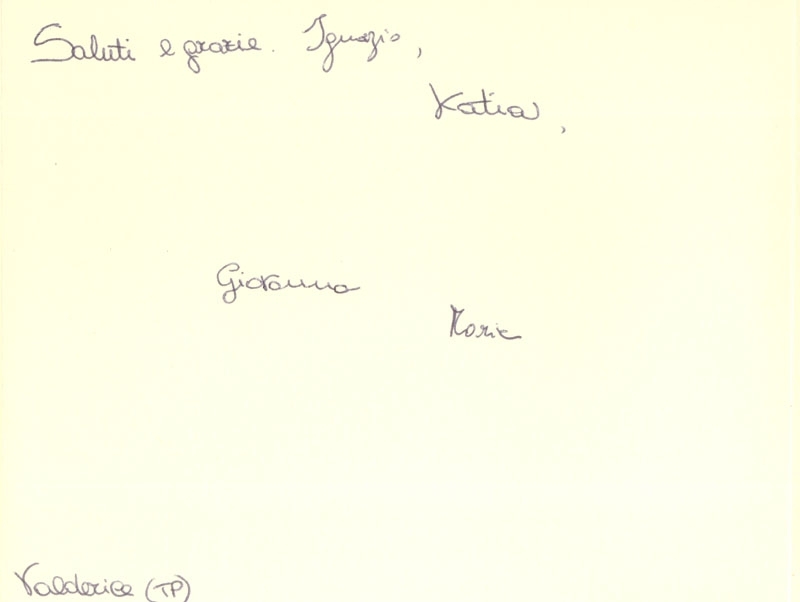 Saluti e grazie. Ignazio,
Katia,
Giovanna
Maria
Valderice (TP)